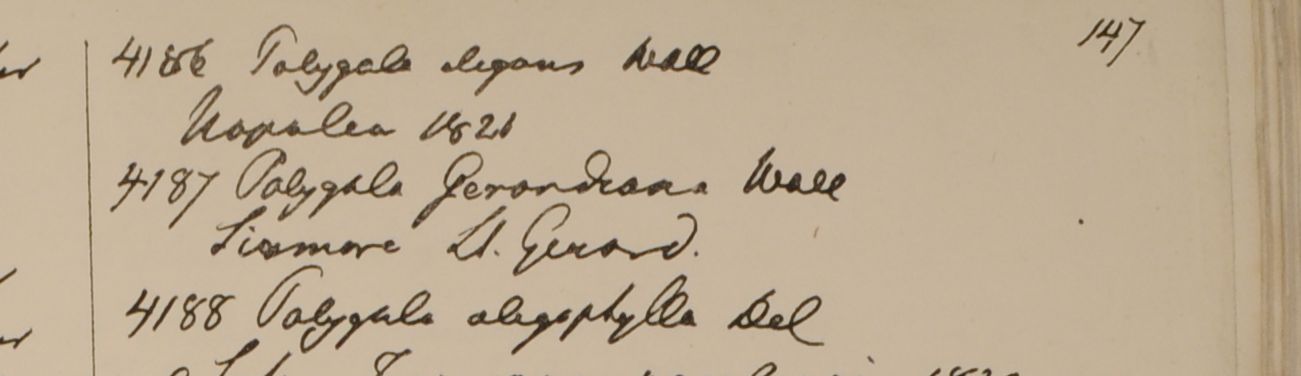 147
4186 Polygala elegans Wall
Napalea 1821
4187 Polygala Gerardiana Wall
Sirmore Lt. Gerard.
4188 Polygala oligophylla Del